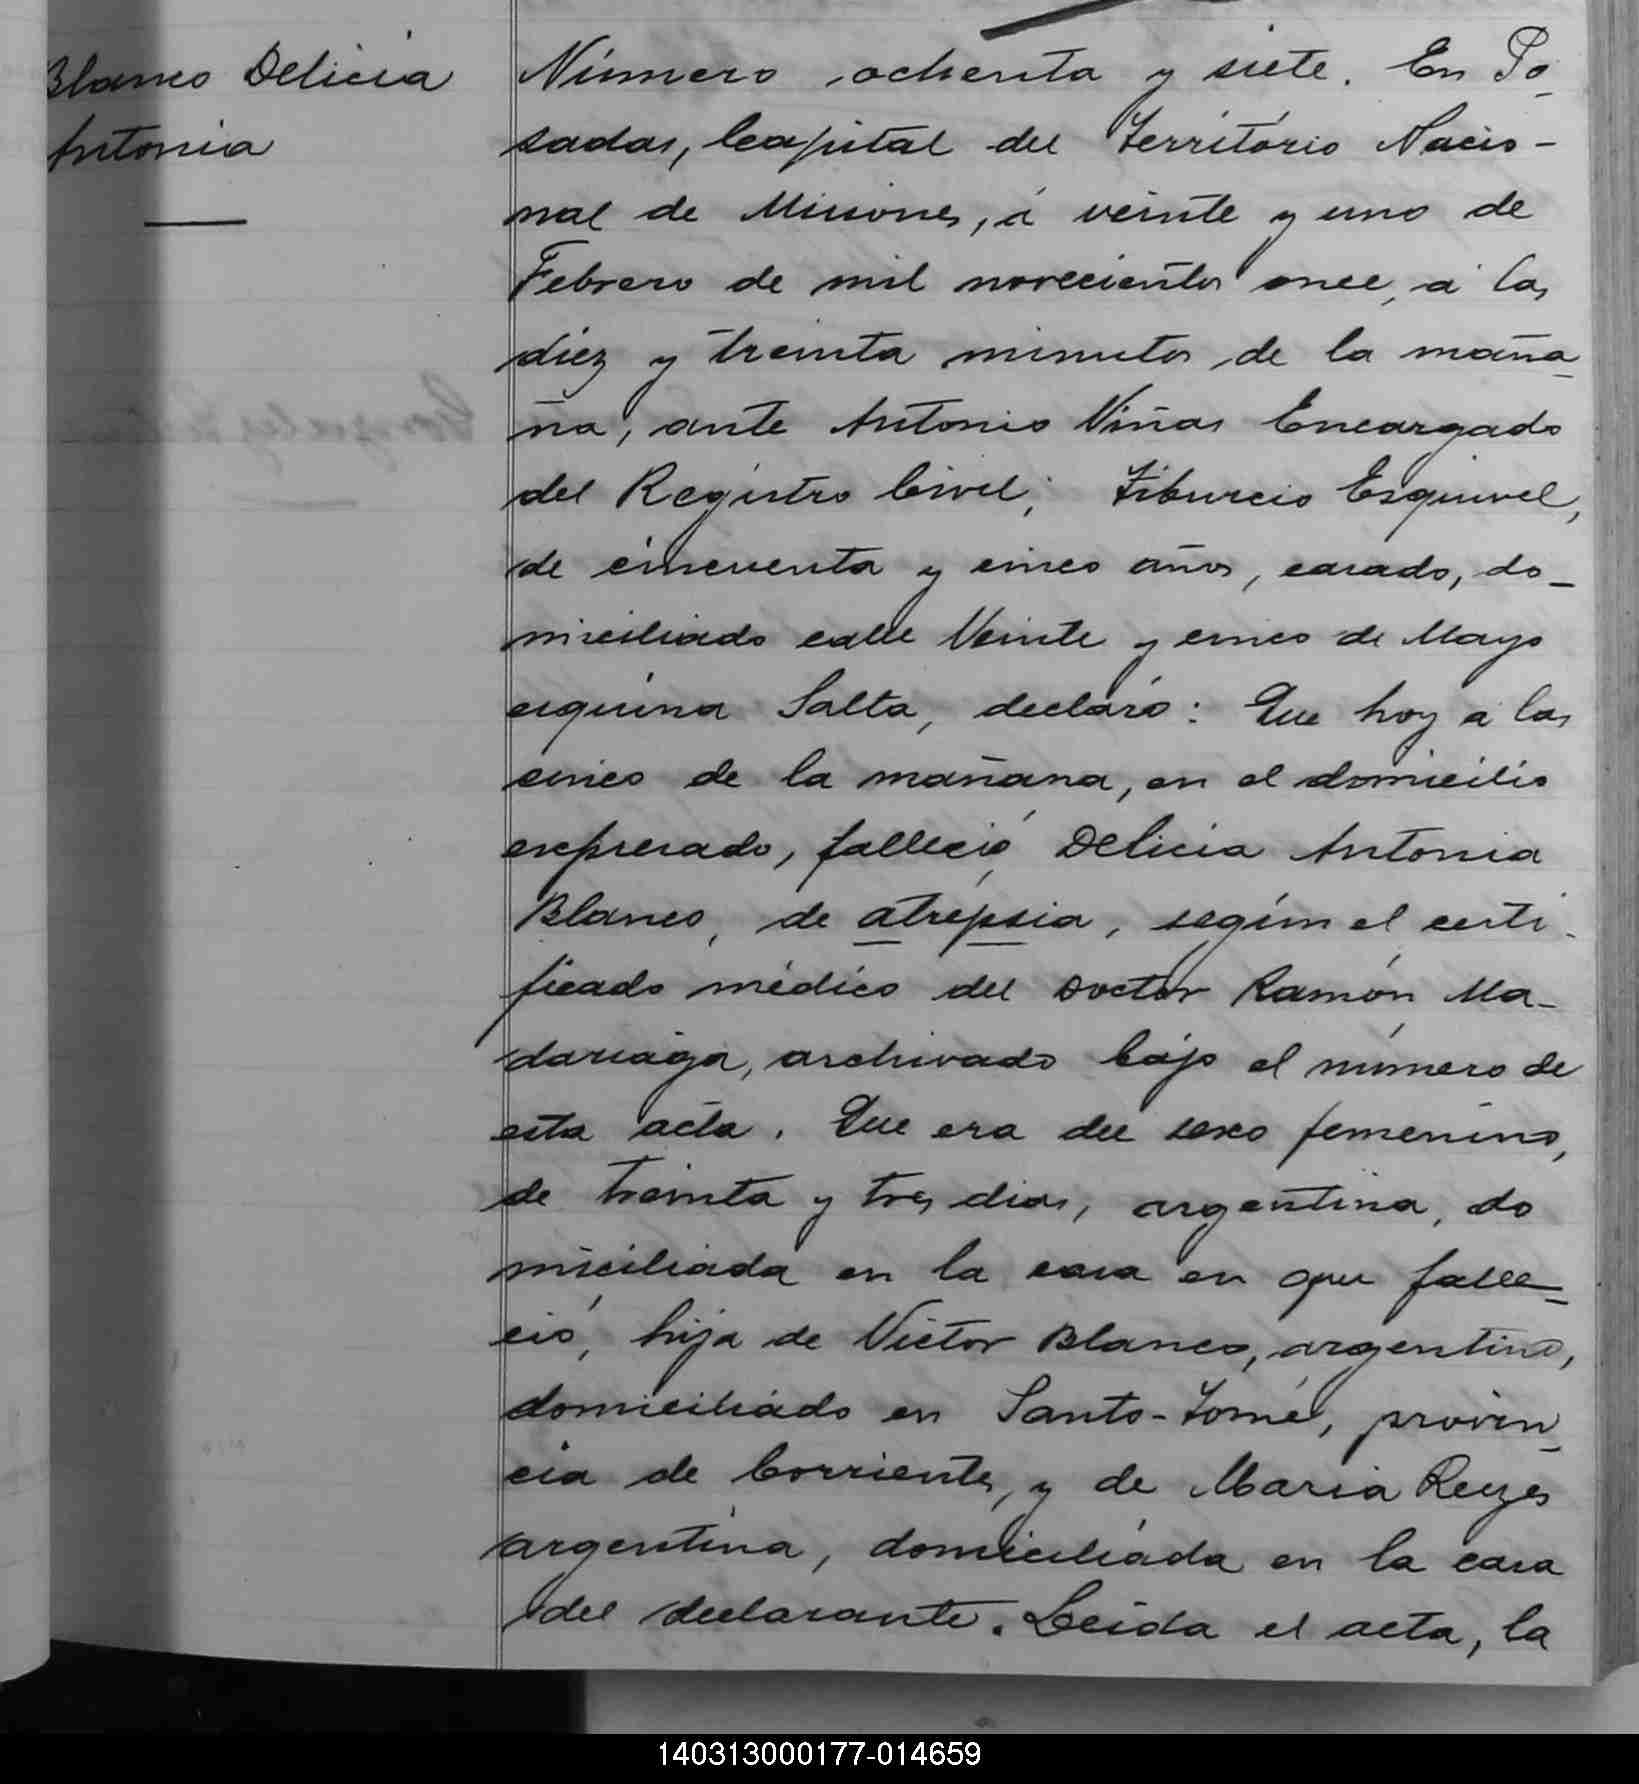 Blanco Delicia
Antonia
Número ochenta y siete. En Po-
sadas, Capital del Territorio Nacio-
nal de Misiones, á veinte y uno de
Febrero de mil novecientos once, á las
diez y treinta minutos de la maña-
ña, ante Antonio Viñas Encargado
del Registro Civil; Tiburcio Esquivel,
de cincuenta y cinco años, casado, do-
miciliado calle Veinte y cinco de Mayo
esquina Salta, declaró: Que hoy á las
cinco de la mañana, en el domicilio
expresado, falleció Delicia Antonia
Blanco, de atrepsia, según el certi-
ficado médico del Doctor Ramón Ma-
dariaga, archivado bajo el número de
esta acta. Que era del sexo femenino,
de treinta y tres dias, argentina, do
miciliada en la casa en que falle-
ció, hija de Victor Blanco, argentino,
domiciliado en Santo-Tomé, provin-
cia de Corrientes, y de Maria Reyes
argentina, domiciliada en la casa
del declarante. Leida el acta, la
140313000177-014659